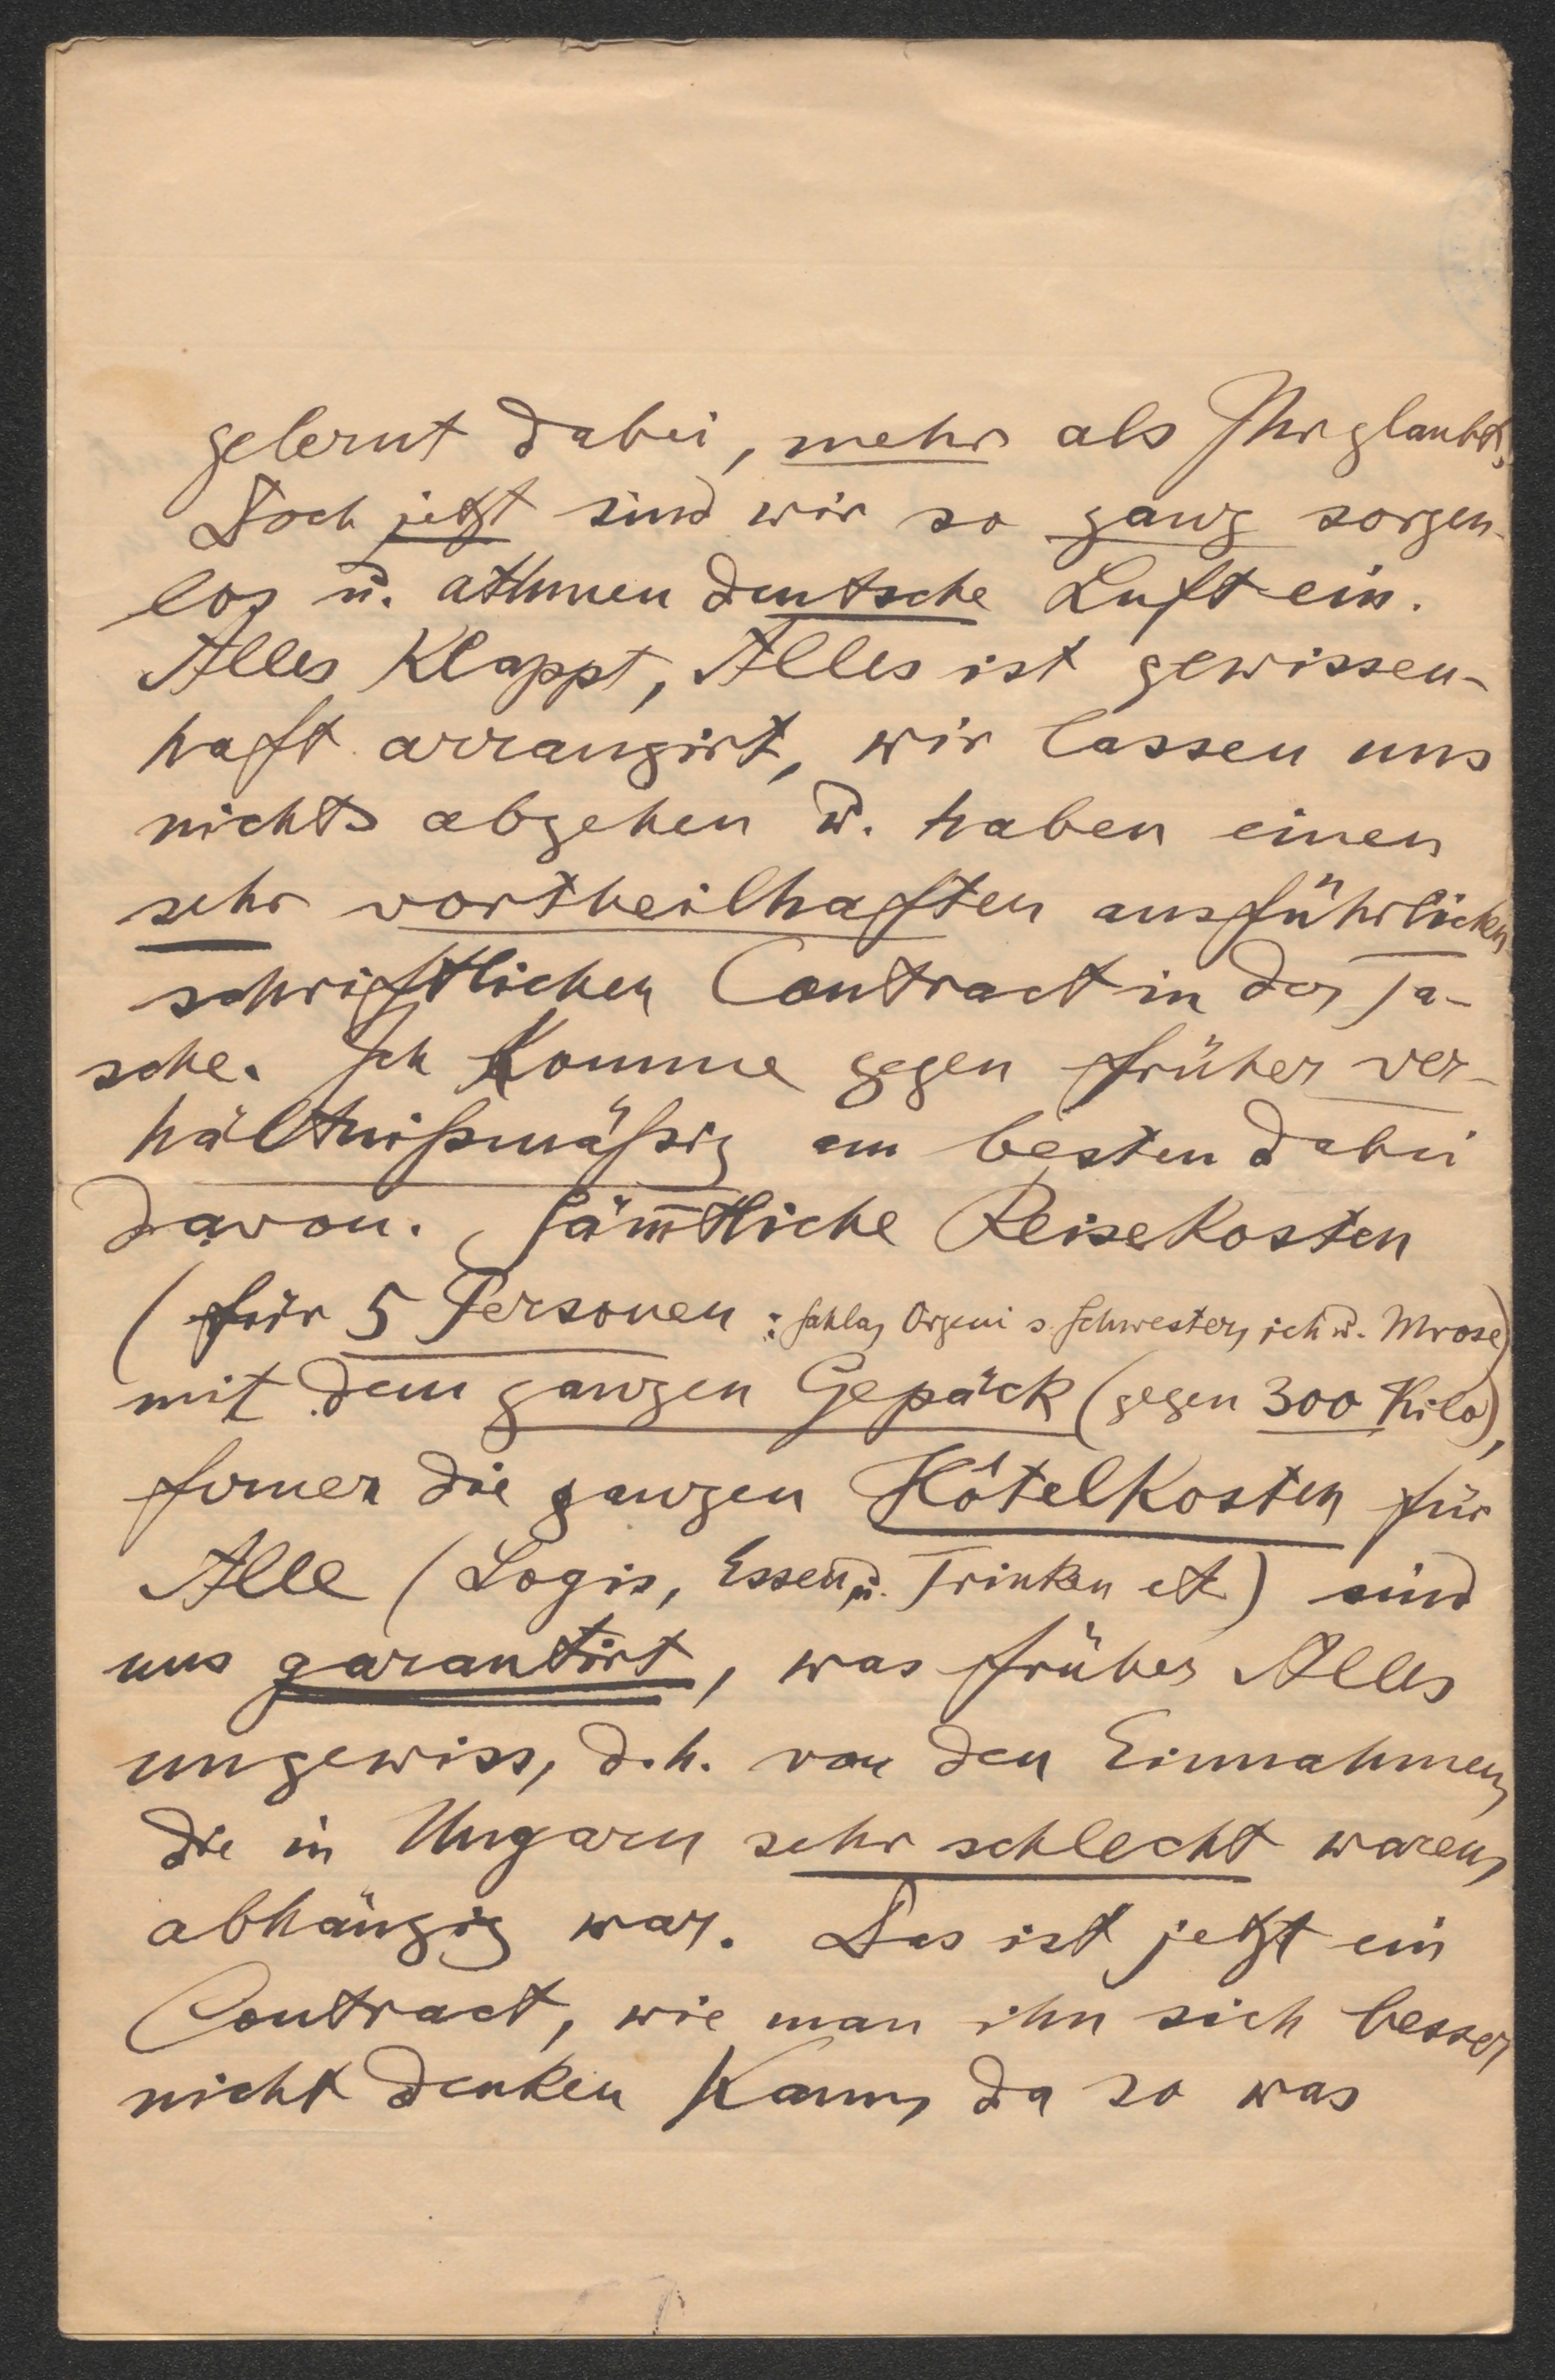 gelernt dabei, mehr als Ihr glaubt.
Doch jetzt sind wir so ganz sorgen-
los u. athmen deutsche Luft ein.
Alles klappt, Alles ist gewissen-
haft arrangirt, wir lassen uns
nichts abgehen u. haben einen
sehr vortheilhaften ausführlichen
schriftlichen Contract in der Ta-
sche. Ich komme gegen früher ver-
hältnißmäßig am besten dabei
davon. Sämtliche Reisekosten
(für 5 Personen: Sahla, Orgeni s. Schwester, ich u. Mrose)
mit dem ganzen Gepäck (gegen 300 Kilo),
ferner die ganzen Hôtelkosten für
Alle (Logis, Essen u. Trinken etc) sind
uns garantirt, was früher Alles
ungewiss, d.h. von den Einnahmen,
die in Ungarn sehr schlecht waren,
abhängig war. Das ist jetzt ein
Contract, wie man ihn sich besser
nicht denken kann, da so was